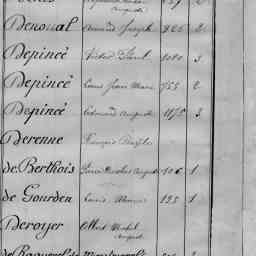 Auguste
Denoual Armand Joseph 826 2
Depincé Victor Paul 1080 3
Depincé Louis Jean Marie 755 2
Depincé Edmond Auguste 1175 3
Derenne François Basile
de Berthois Pierre Nicolas Auguste 106 1
de Gourden Louis 125 1
Deroyer Albert Michel
August